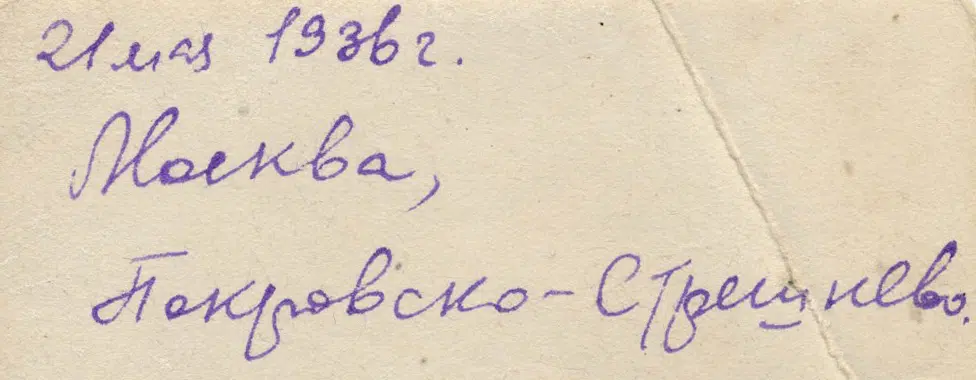 21 мая 1936 г.
Москва,
Покровско-Стрешнево.